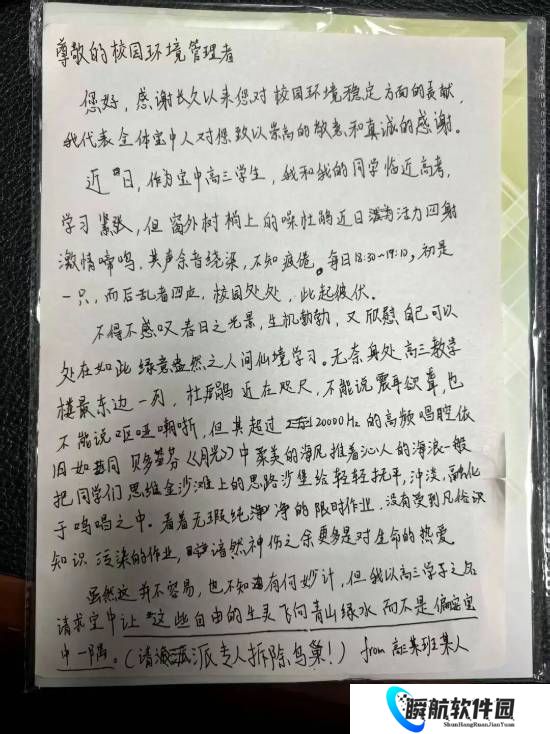 尊敬的校园环境管理者
您好,感谢长久以来您对校园环境稳定方面的贡献,
我代表全体宝中人对您致以崇高的敬意和真诚的感谢。
近日,作为宝中高三学生,我和我的同学临近高考,
学习紧张,但窗外树梢上的噪杜鹃近日活力四射
激情啼鸣,其声余音绕梁,不知疲倦。每日18:30~19:10,初是
一只,而后乱者四应,校园处处,此起彼伏.
不得不感叹春日之光景,生机勃勃,又欣慰自己可以
处在如此绿意盎然之人间仙境学习。无奈身处高三教学
楼最东边一列,杜鹃近在咫尺,不能说震耳欲聋,也
不能说呕哑嘲哳,但其超过20000Hz的高频唱腔依
旧如同贝多芬《月光》中柔美的海风推着沁人的海浪一般
把同学们思维金沙滩上的思路沙堡给轻轻抚平,冲淡,融化
于鸣唱之中.看着无瑕纯净的限时作业,没有受到凡俗识
知识污染的作业,黯然神伤之余更多是对生命的热爱
虽然这并不容易,也不知有何妙计,但我以高三学子之名
请求宝中让这些自由的生灵飞向青山绿水而不是偏安宝
中一隅。(请派专人拆除鸟巢!) from 高三某班某人
瞬航软件园
ShunHangRuanJianYuan